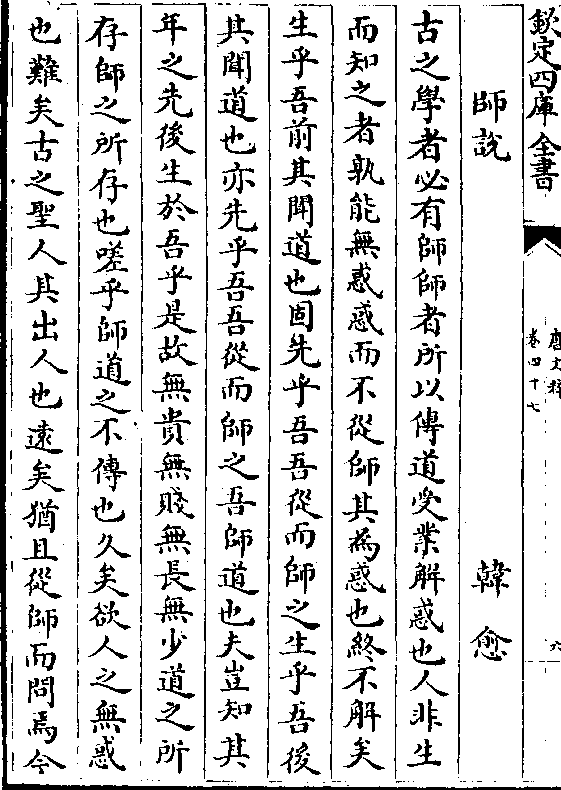 欽定四庫全書
唐文粹
卷四十七
六
師說 韓愈
古之學者必有師師者所以傳道受業解惑也人非生
而知之者孰能無惑惑而不從師其為惑也終不解矣
生乎吾前其聞道也固先乎吾吾從而師之生乎吾後
其聞道也亦先乎吾吾從而師之吾師道也夫豈知其
年之先後生於吾乎是故無貴無賤無長無少道之所
存師之所存也嗟乎師道之不傳也久矣欲人之無惑
也難矣古之聖人其出人也遠矣猶且從師而問焉今